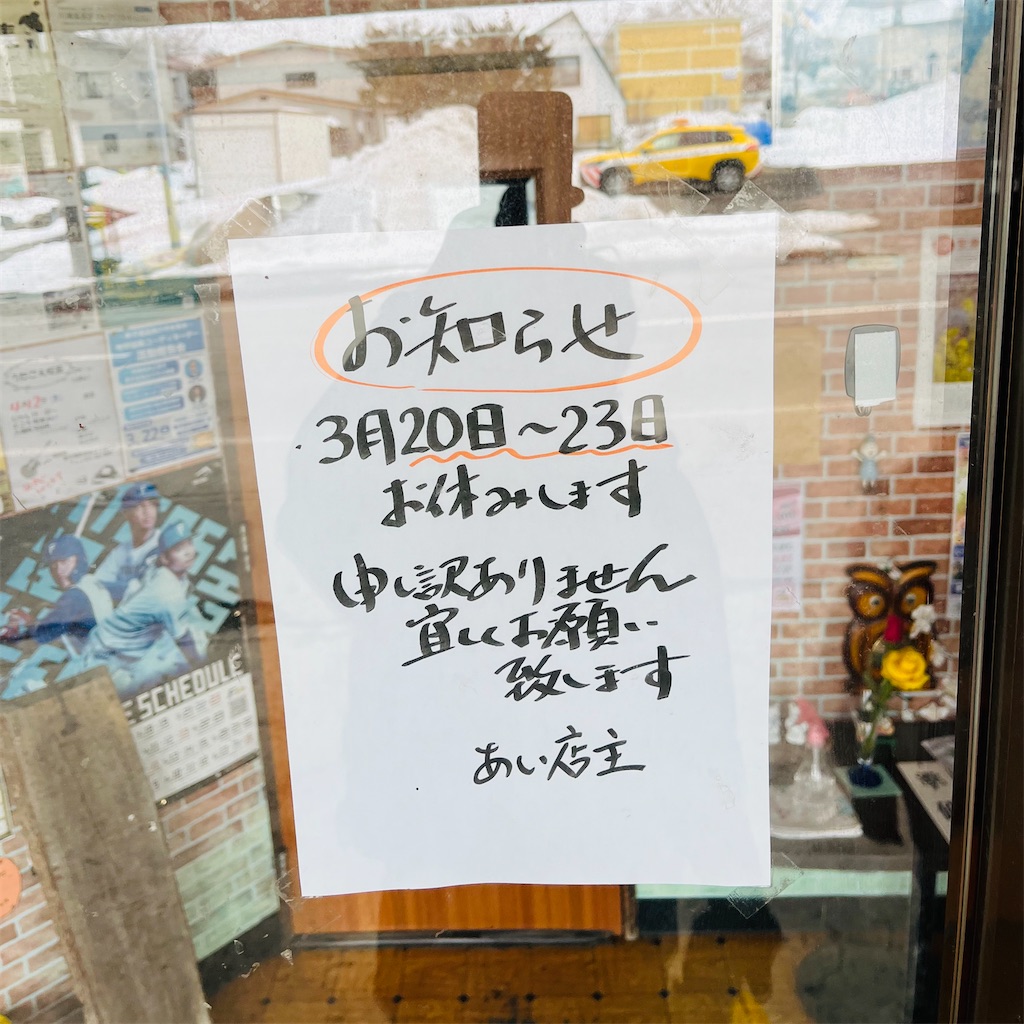 お知らせ
3月20日～23日
お休みします
申し訳ありません
宜しくお願い
致します
あい店主
SCHEDULE